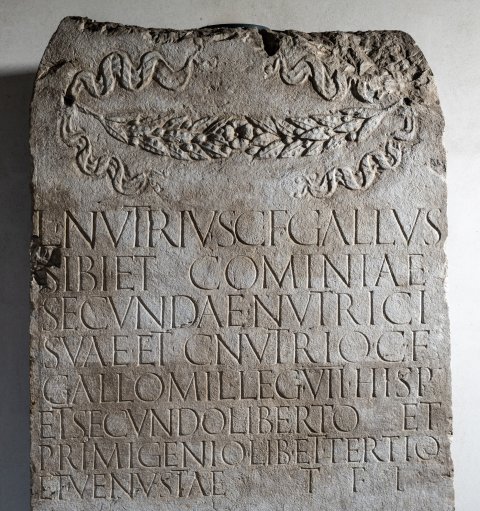 L NVTRIVS C F GALLVS
SIBI ET COMINIAE
SECVNDAE NVTRICI
SVAE ET C NVTRIO C F
GALLO MIL LEG VII HISP
ET SECVNDO LIBERTO ET
PRIMIGENIO LIB ET TERTIO
ET VENVSTAE T F I